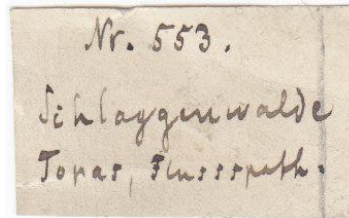 Nr. 553.
Schlaggenwalde
Topas, Flussspath.